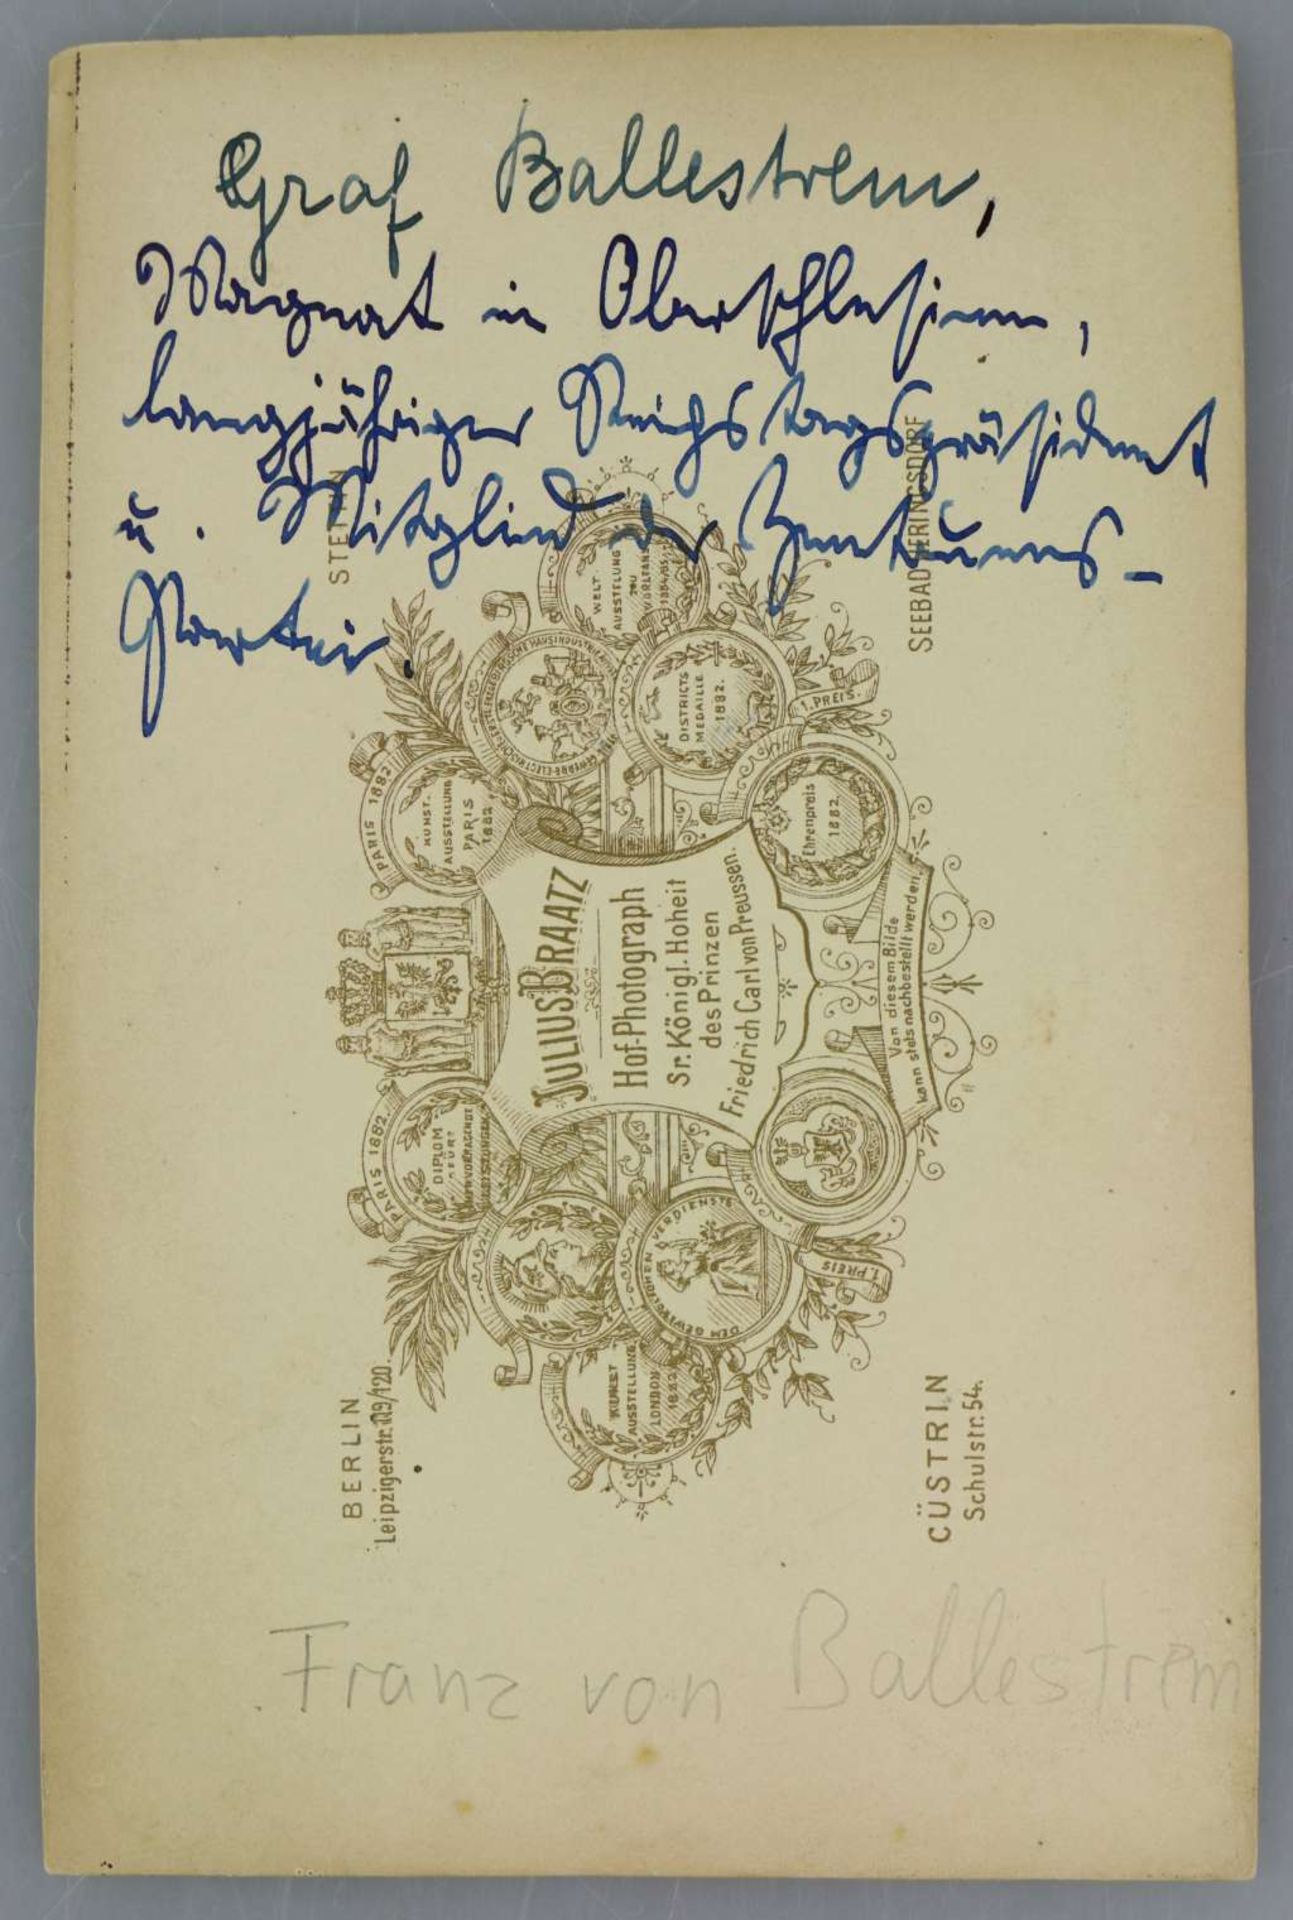 Graf Ballestrem,
Magnat in Oberschlesien,
langjähriger Reichstagspräsident
u. Mitglied der Zentrums-
Partei.
STETTIN
SEEBAD HERINGSDORF
WELT
AUSSTELLUNG
ZU
NEW ORLEANS
1884/85
DISTRICTS
MEDAILLE
1882.
1. PREIS.
PARIS 1882
KUNST-
AUSSTELLUNG
PARIS
1882.
Ehrenpreis
1882.
JULIUS BRAATZ
Hof-Photograph
Sr. Königl. Hoheit
des Prinzen
Friedrich Carl von Preussen.
Von diesem Bilde
kann stets nachbestellt werden.
PARIS 1882.
DIPLOM
FÜR
HERVORRAGENDE
LEISTUNGEN
DEM GEWERBLICHEN VERDIENSTE
1. PREIS
KUNST
AUSSTELLUNG
LONDON
1882.
BERLIN
Leipzigerstr. 119/120.
CÜSTRIN
Schulstr. 54.
Franz von Ballestrem